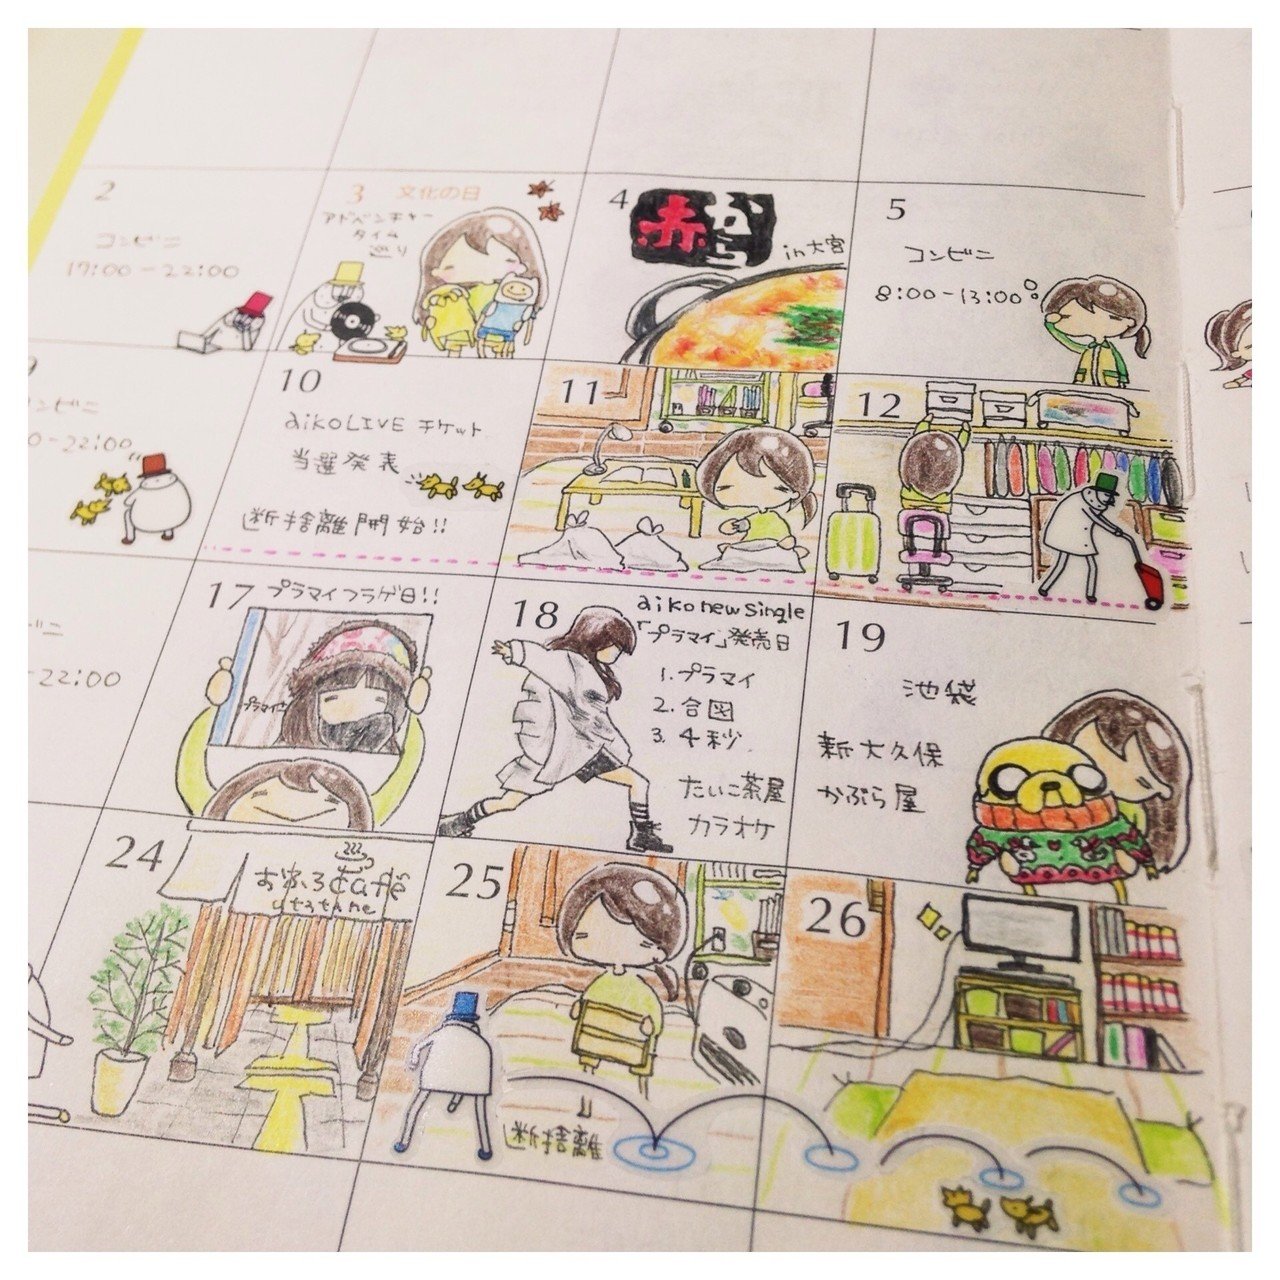 2
コンビニ
17:00-22:00
3 文化の日
アドベンチャー
タイム
巡り
4
赤から
in大宮
5
コンビニ
8:00-13:00
ンビニ
0-22:00
10
aikoLIVE チケット
当選発表
断捨離開始!!
11
12
ビニ
-22:00
17 プラマイフラゲ日!!
プラマイ
18
aiko new single
「プラマイ」発売日
1.プラマイ
2.合図
3.4秒
たいこ茶屋
カラオケ
19
池袋
新大久保
かぶら屋
24
おふろcafé
utatane
25
断捨離
26